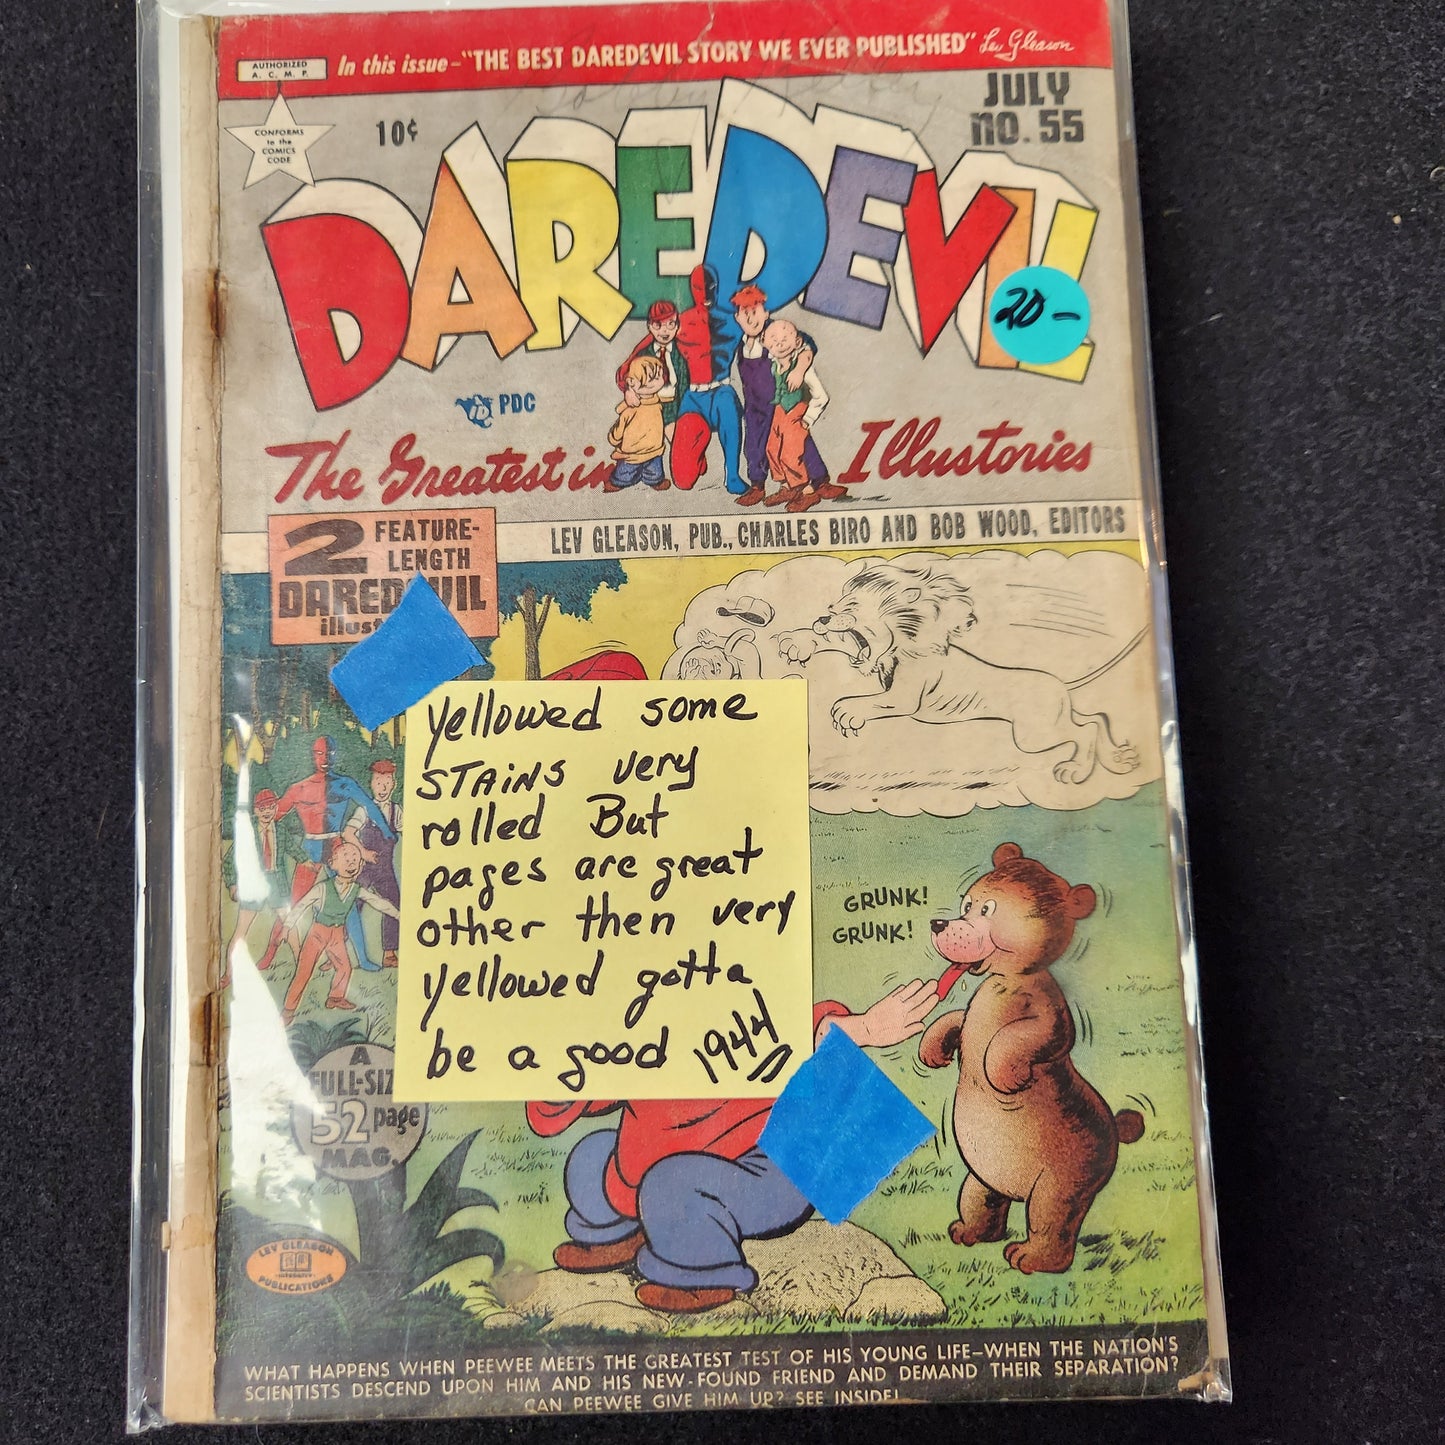 In this issue—"THE BEST DAREDEVIL STORY WE EVER PUBLISHED" Lev Gleason
AUTHORIZED
A. C. M. P.
CONFORMS
to the
COMICS
CODE
10¢
JULY
NO. 55
DAREDEVIL
20-
PDC
The Greatest in Illustories
2 FEATURE-
LENGTH
DAREDEVIL
illust
LEV GLEASON, PUB., CHARLES BIRO AND BOB WOOD, EDITORS
yellowed some
STAINS very
rolled But
pages are great
other then very
yellowed gotta
be a good 1944
GRUNK!
GRUNK!
A
FULL-SIZ
52 page
MAG.
LEV GLEASON
PUBLICATIONS
WHAT HAPPENS WHEN PEEWEE MEETS THE GREATEST TEST OF HIS YOUNG LIFE—WHEN THE NATION'S
SCIENTISTS DESCEND UPON HIM AND HIS NEW-FOUND FRIEND AND DEMAND THEIR SEPARATION?
CAN PEEWEE GIVE HIM UP? SEE INSIDE!